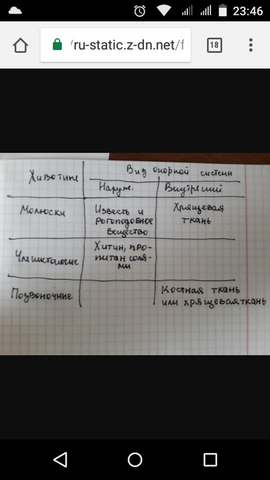 23:46
ru-static.z-dn.net/f
18
Животные
Вид опорной системы
Наруж.
Внутренний
Молюски
Известь и
рогоподобное
вещество
Хрящевая
ткань
Членистоногие
Хитин, про-
питан соля-
ми
Позвоночние
Костная ткань
или хрящевая ткань